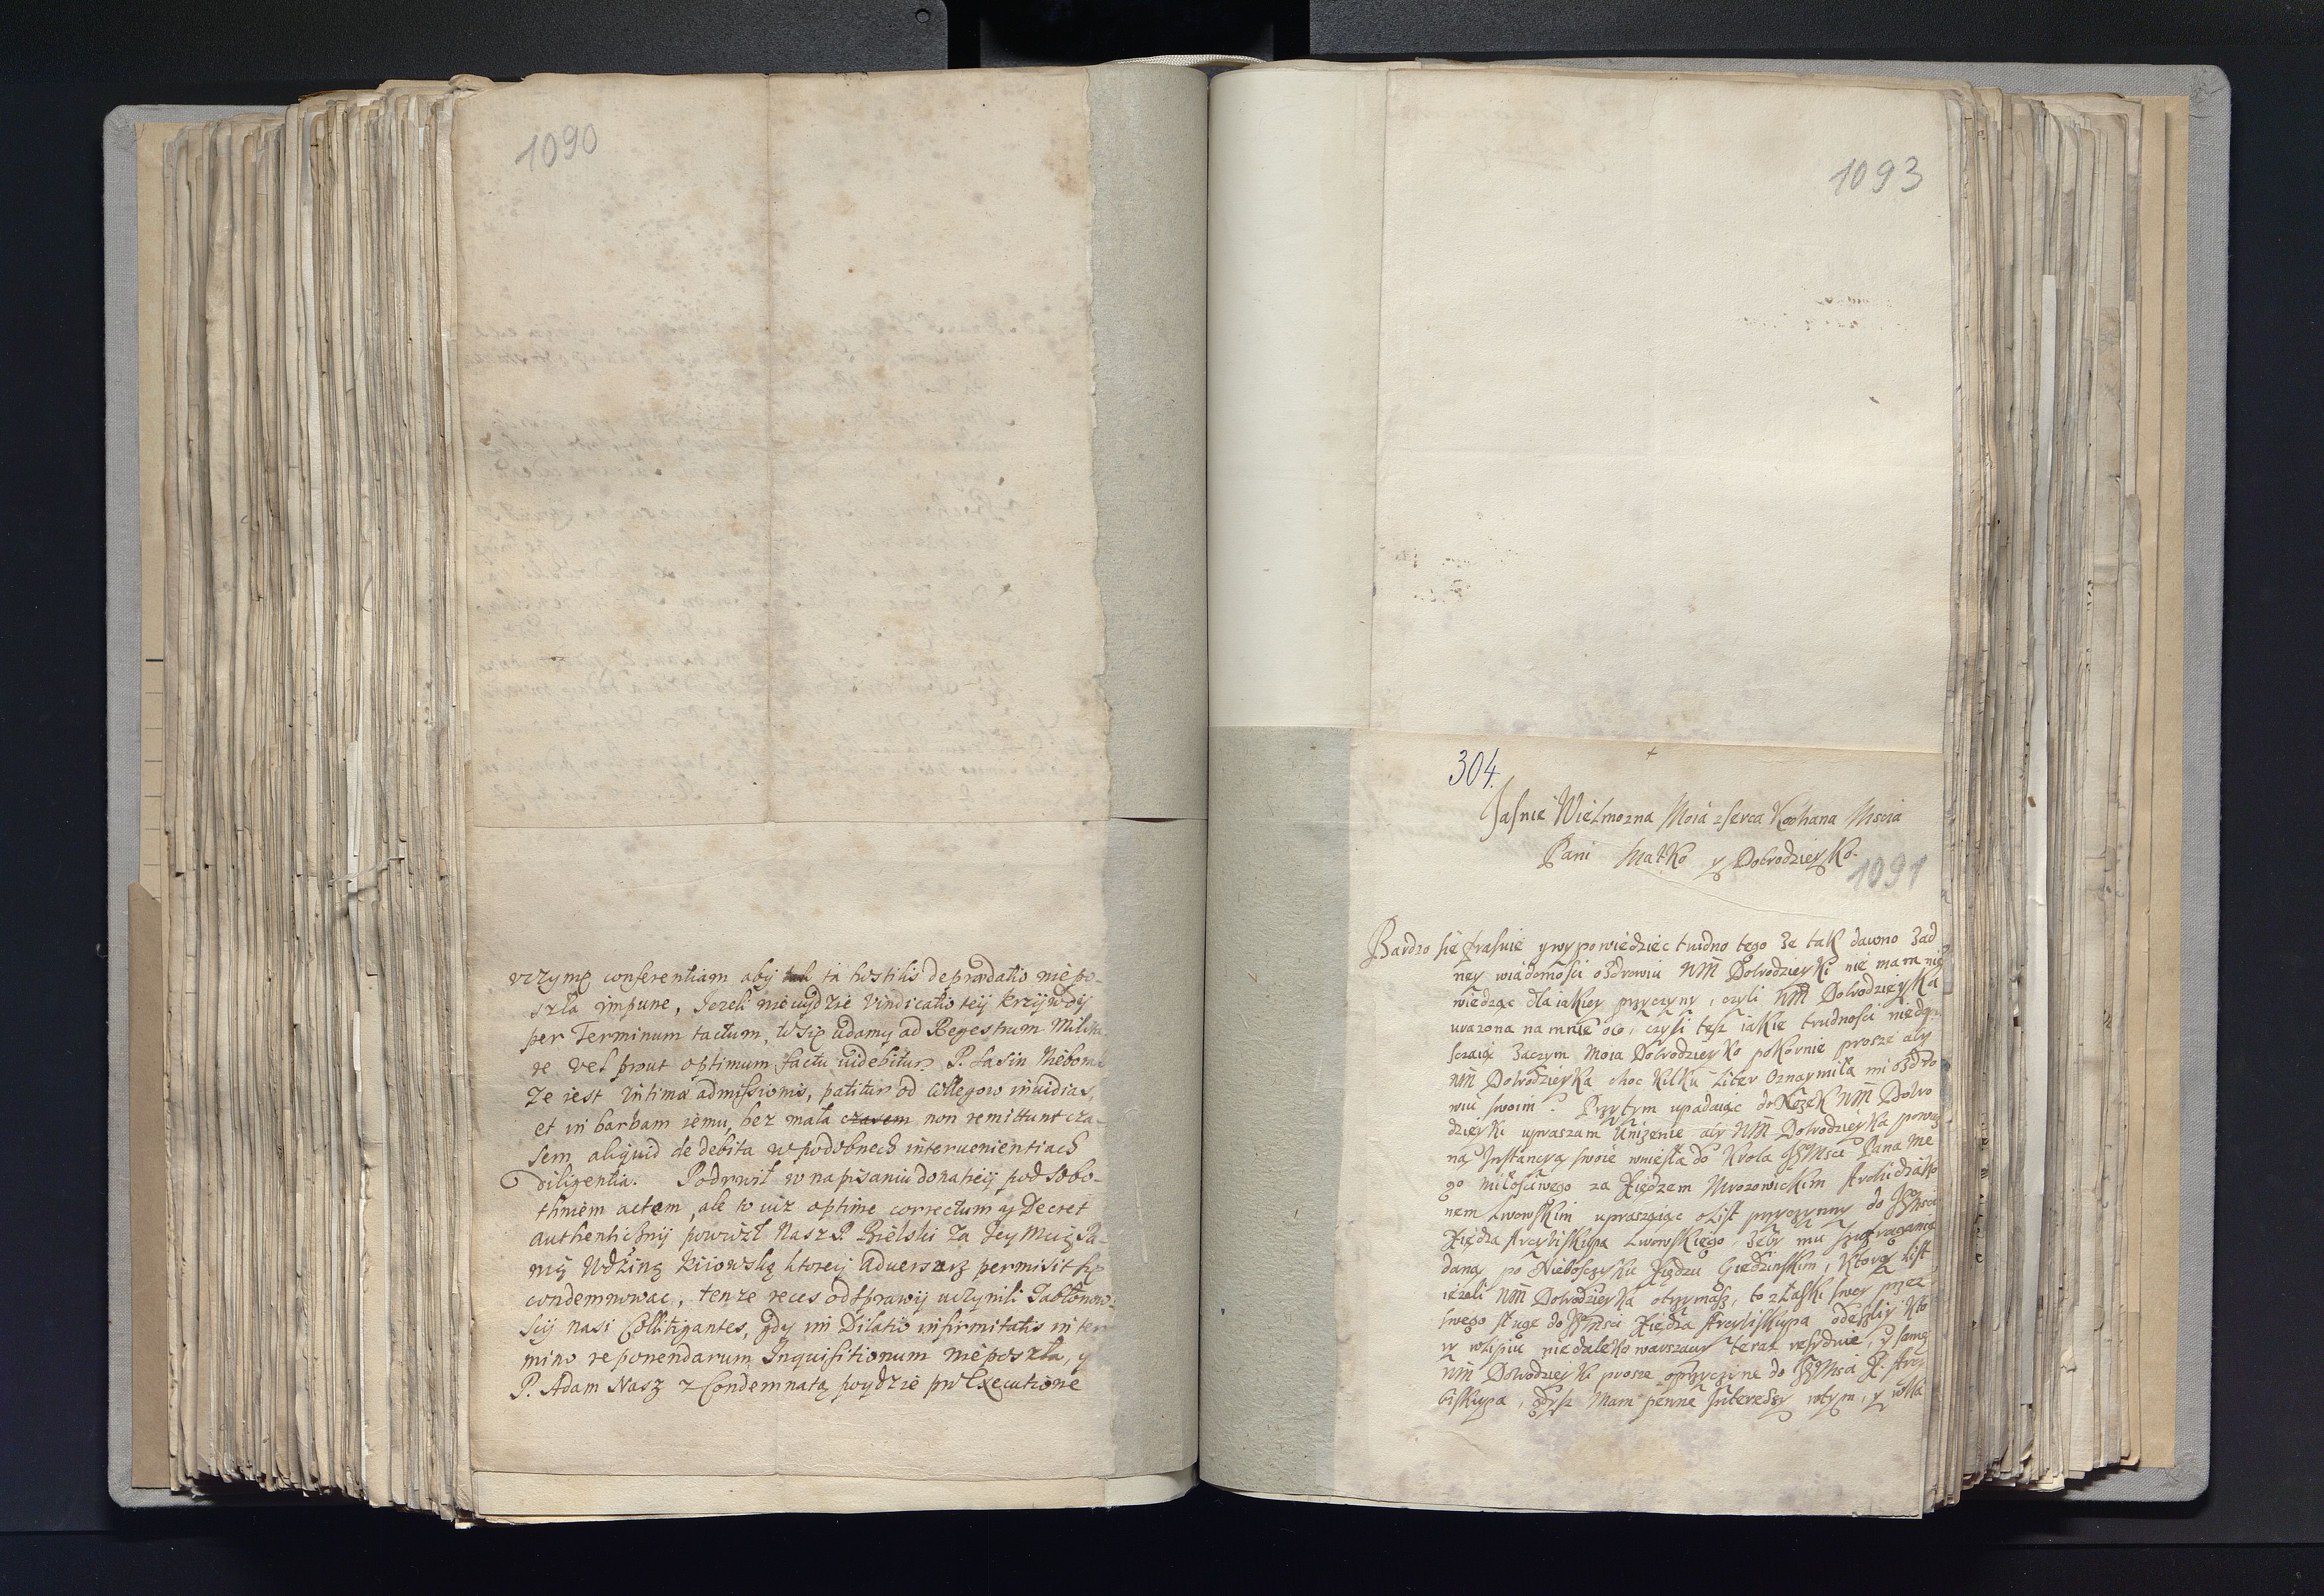 1090
uczynię conferentiam aby ta hostilis depraedatio niepo-
szła impune, Jezeli nieuydzie vindicatio teij krzijwdij
per Terminum tactum, tu się udamy ad Regestrum Milita
re vel prout optimum factu videbitur. P. Łasin Niebom
ze iest intimae admissionis, patitur od Collegow inuidias,
et in barbam iemu, bez mała czasem non remittunt cza-
sem aliquid de debita w podobnech interuenientiach
diligentia. Podrwił w napisaniu donatieij pod Sobo-
thniem actem, ale to iuz optime correctum aż Decret
authentichnij powiozł Nasz P. Bielski za Jey Mcią Pa-
nią Wdziną Kiiowską ktoreij aduersarz permisit się
condemnowac, tenze reces od sprawij uczynili Jabłonow-
scij nasi Collitigantes, gdy im Dilatio infirmitatis in ter
mino reponendarum Inquisitionum nieposzła, y
P. Adam Nasz z Condemnatą poydzie pro Executione
1093
304.
Jasnie Wielmozna Moia zserca Kochana Mscia
Pani Matko y Dobrodzieyko.
1091
Bardzo się frasuie y wypowiedziec trudno tego ze tak dawno zad
ney wiadomosci o zdrowiu WM Dobrodzieyki nie mam nie
wiedząc dla iakiey przyczyny, czyli WM Dobrodzieyka
urazona na mnie oco, czyli tesz iakie trudnosci niedopu
sczaią zaczym Moia Dobrodzieyko pokornie prosze aby
WM Dobrodzieyka choc kilku liter oznaymiła mi o zdro
wiu swoim. Przytym upadaiąc do Nożek WM Dobro
dzieyki upraszam unizenie aby WM Dobrodzieyka powaz
ną Instancyą swoie wniesła do Krola JEMsci Pana Me
go miłosciwego za Xiędzem Mrozowickim Archidiako
nem Lwowskim upraszaiąc o list przyczynny do JEMsci
Xiędza Arcybiskupa Lwowskiego zeby mu
daną po Nieboszczyku Xiędzu Giedzinskim, Ktory list
iezeli WM Dobrodzieyka otrzymasz, to z łaski swey przez
swego sługe do JEMsci Xiędza Arcybiskupa odeszliy kto
ry niedaleko warszawy teraz residuie, y samę
WM Dobrodzieyki prosze o przyczyne do JEMsci X. Arcy
biskupa, gdysz Mam penne Interessy wtym, y